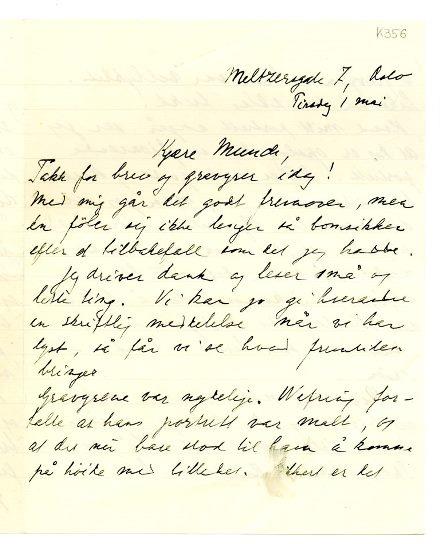 K356
Meltzersgade 7, Oslo
Tirsdag 1 mai
Kjære Munch,
Takk for brev og gravyrer idag!
Med mig går det godt fremover, men
en føler sig ikke lenger så bomsikker
efter et tilbakefall som det jeg hadde.
Jeg driver dank og leser små og
lette ting. Vi kan jo gi hverandre
en skriftlig meddelelse når vi har
lyst, så får vi se hvad fremtiden
bringer
Gravyrene var nydelige. Wefring for-
talte at hans portrett var malt, og
at det nu bare stod til ham å komme
på høide med billedet. er det